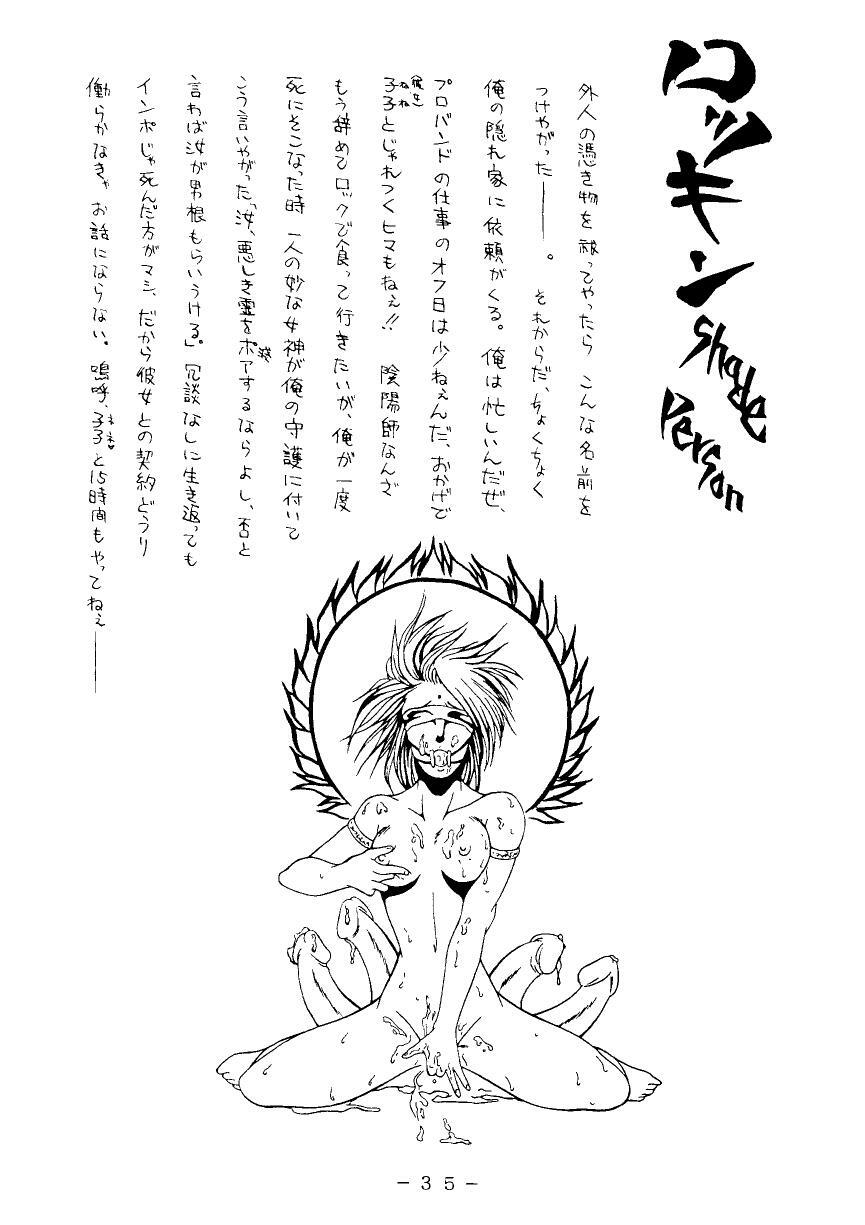 ロッキン
Shade
Person
外人の憑き物を祓ってやったら こんな名前を
つけやがった――。 それからだ、ちょくちょく
俺の隠れ家に依頼がくる。俺は忙しいんだぜ、
プロバンドの仕事のオフ日は少ねぇんだ、おかげで
彼女
子子とじゃれつくヒマもねぇ!! 陰陽師なんざ
ねね
もう辞めてロックで食って行きたいが、俺が一度
死にそこなった時 一人の妙な女神が俺の守護に付いて
こう言いやがった「汝、悪しき霊をポアするならよし、否と
言わば汝が男根もらいうける。」冗談なしに生き返っても
インポじゃ死んだ方がマシ、だから彼女との契約どうり
働らかなきゃ お話にならない。嗚呼、子子と15時間もやってねぇ――
ネネ
-35-